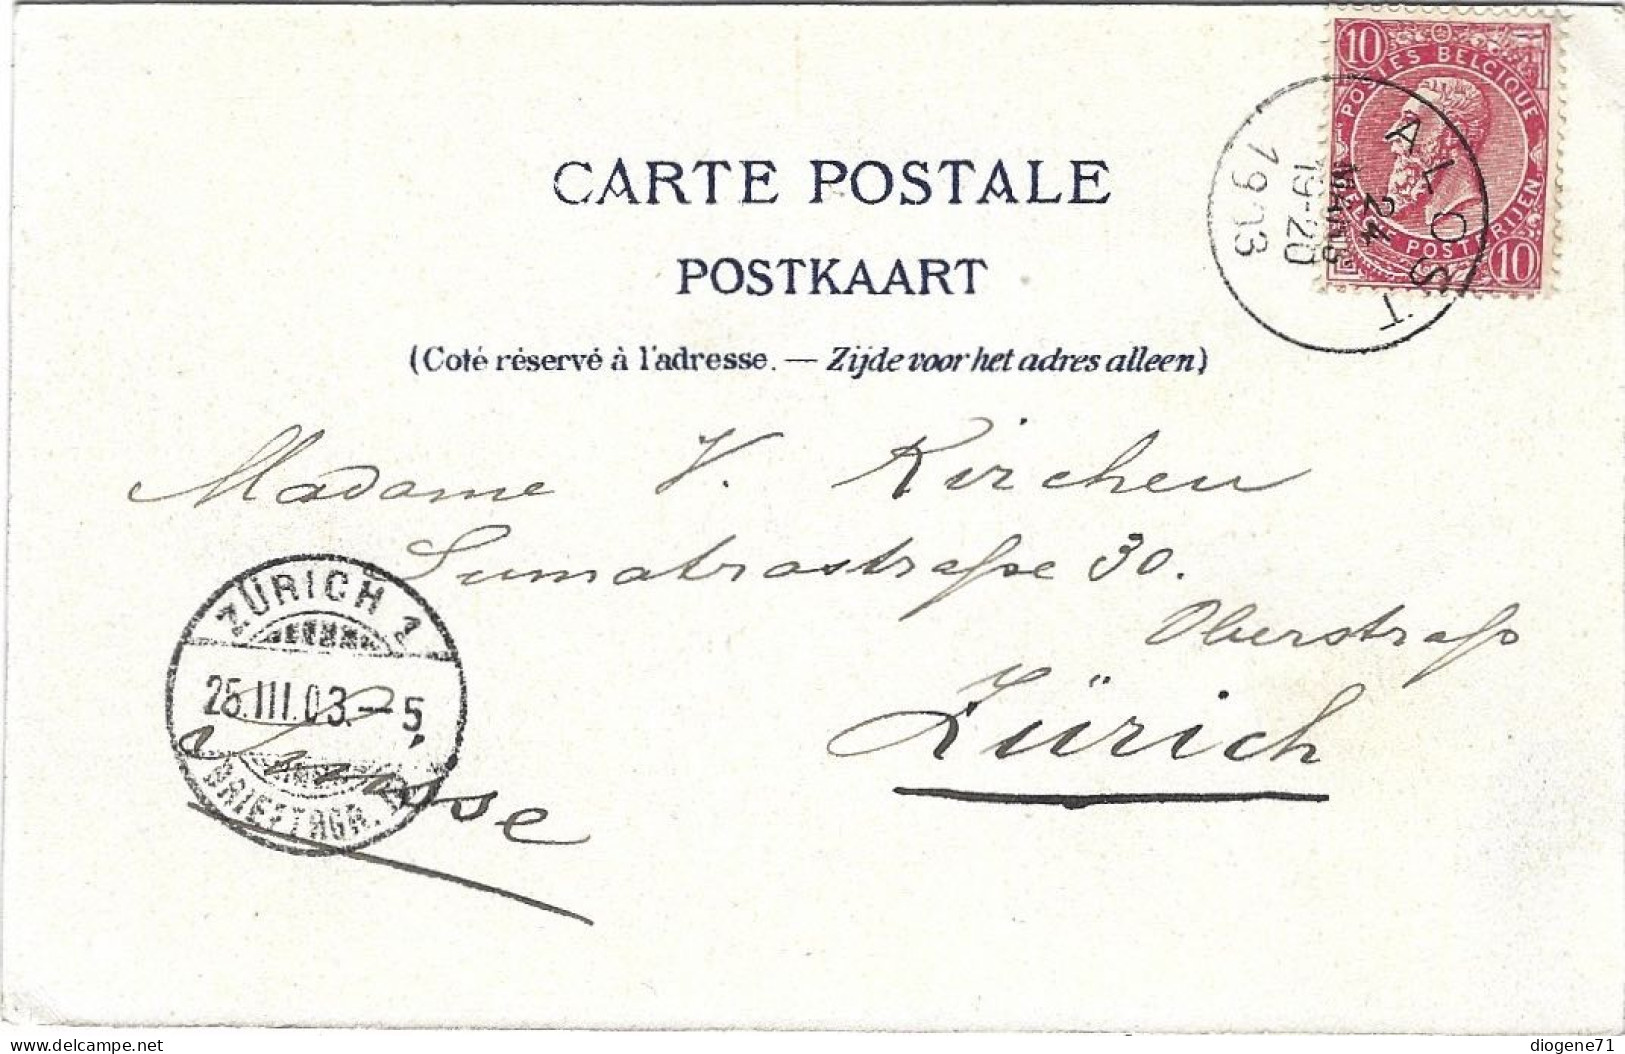 10 10
POSTES BELGIQUE
BELGIE POSTERIJEN
10
ALOST
24
MARS
19-20
1903
CARTE POSTALE
POSTKAART
(Coté réservé à l'adresse. — Zijde voor het adres alleen)
Madame V. Kirchen
Sumatrastraße 30.
Oberstraß
Zürich
Suisse
ZÜRICH 1
25.III.03.-5
BRIEFTRGR.
delcampe.net
diogene71